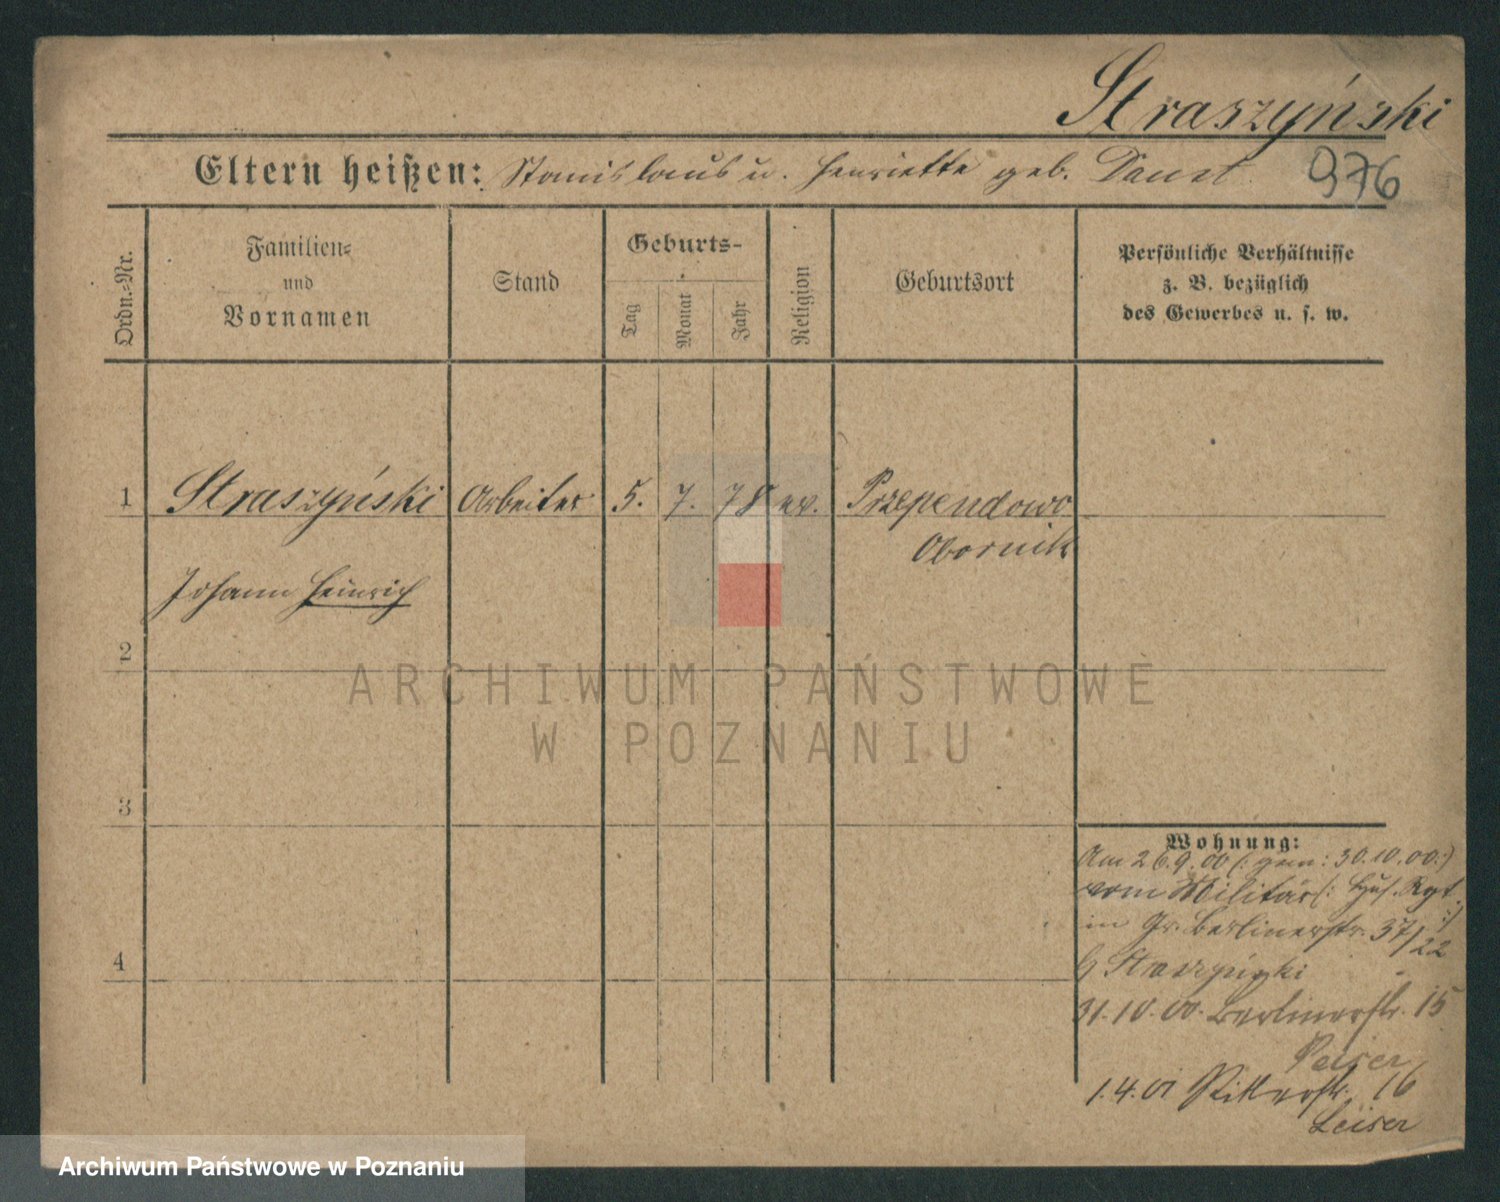 Straszyński
Eltern heißen: Stanislaus u. Henriette geb.
976
Ordn.-Nr.
Familien-
und
Vornamen
Stand
Geburts-
Tag
Monat
Jahr
Religion
Geburtsort
Persönliche Verhältnisse
z. B. bezüglich
des Gewerbes u. s. w.
1 Straszyński Arbeiter 5. 7. 78 ev. Przependowo
Obornik
Johann Heinrich
2
3
4
Wohnung:
Am 26.9.00 (: gem: 30.10.00:)
vom Militär (: Hus. Rgt. :)
in Gr. Berlinerstr. 37/22
b/ Straszyński
31.10.00. Berlinerstr. 15
Peiser
1.4.01 Ritterstr. 16
Leiser
ARCHIWUM PAŃSTWOWE
W POZNANIU
Archiwum Państwowe w Poznaniu